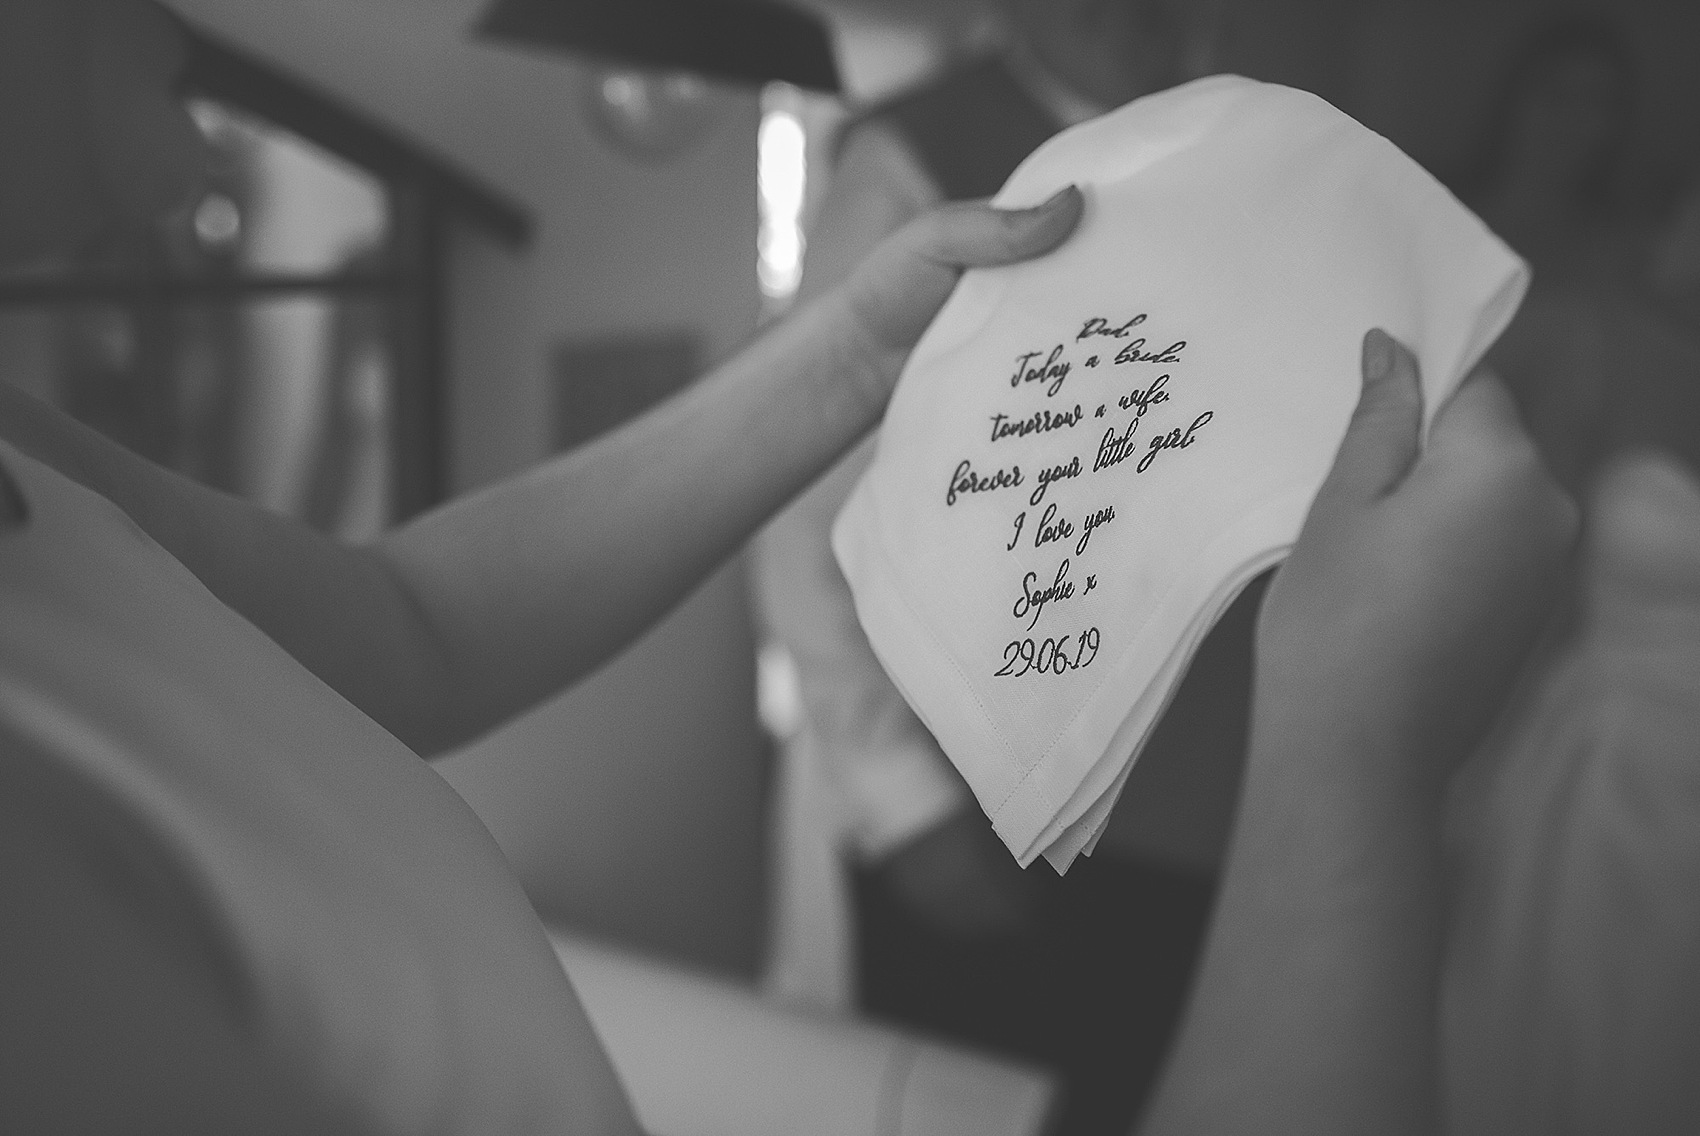 Dad.
Today a bride.
tomorrow a wife.
forever your little girl.
I love you.
Sophie x
29.06.19